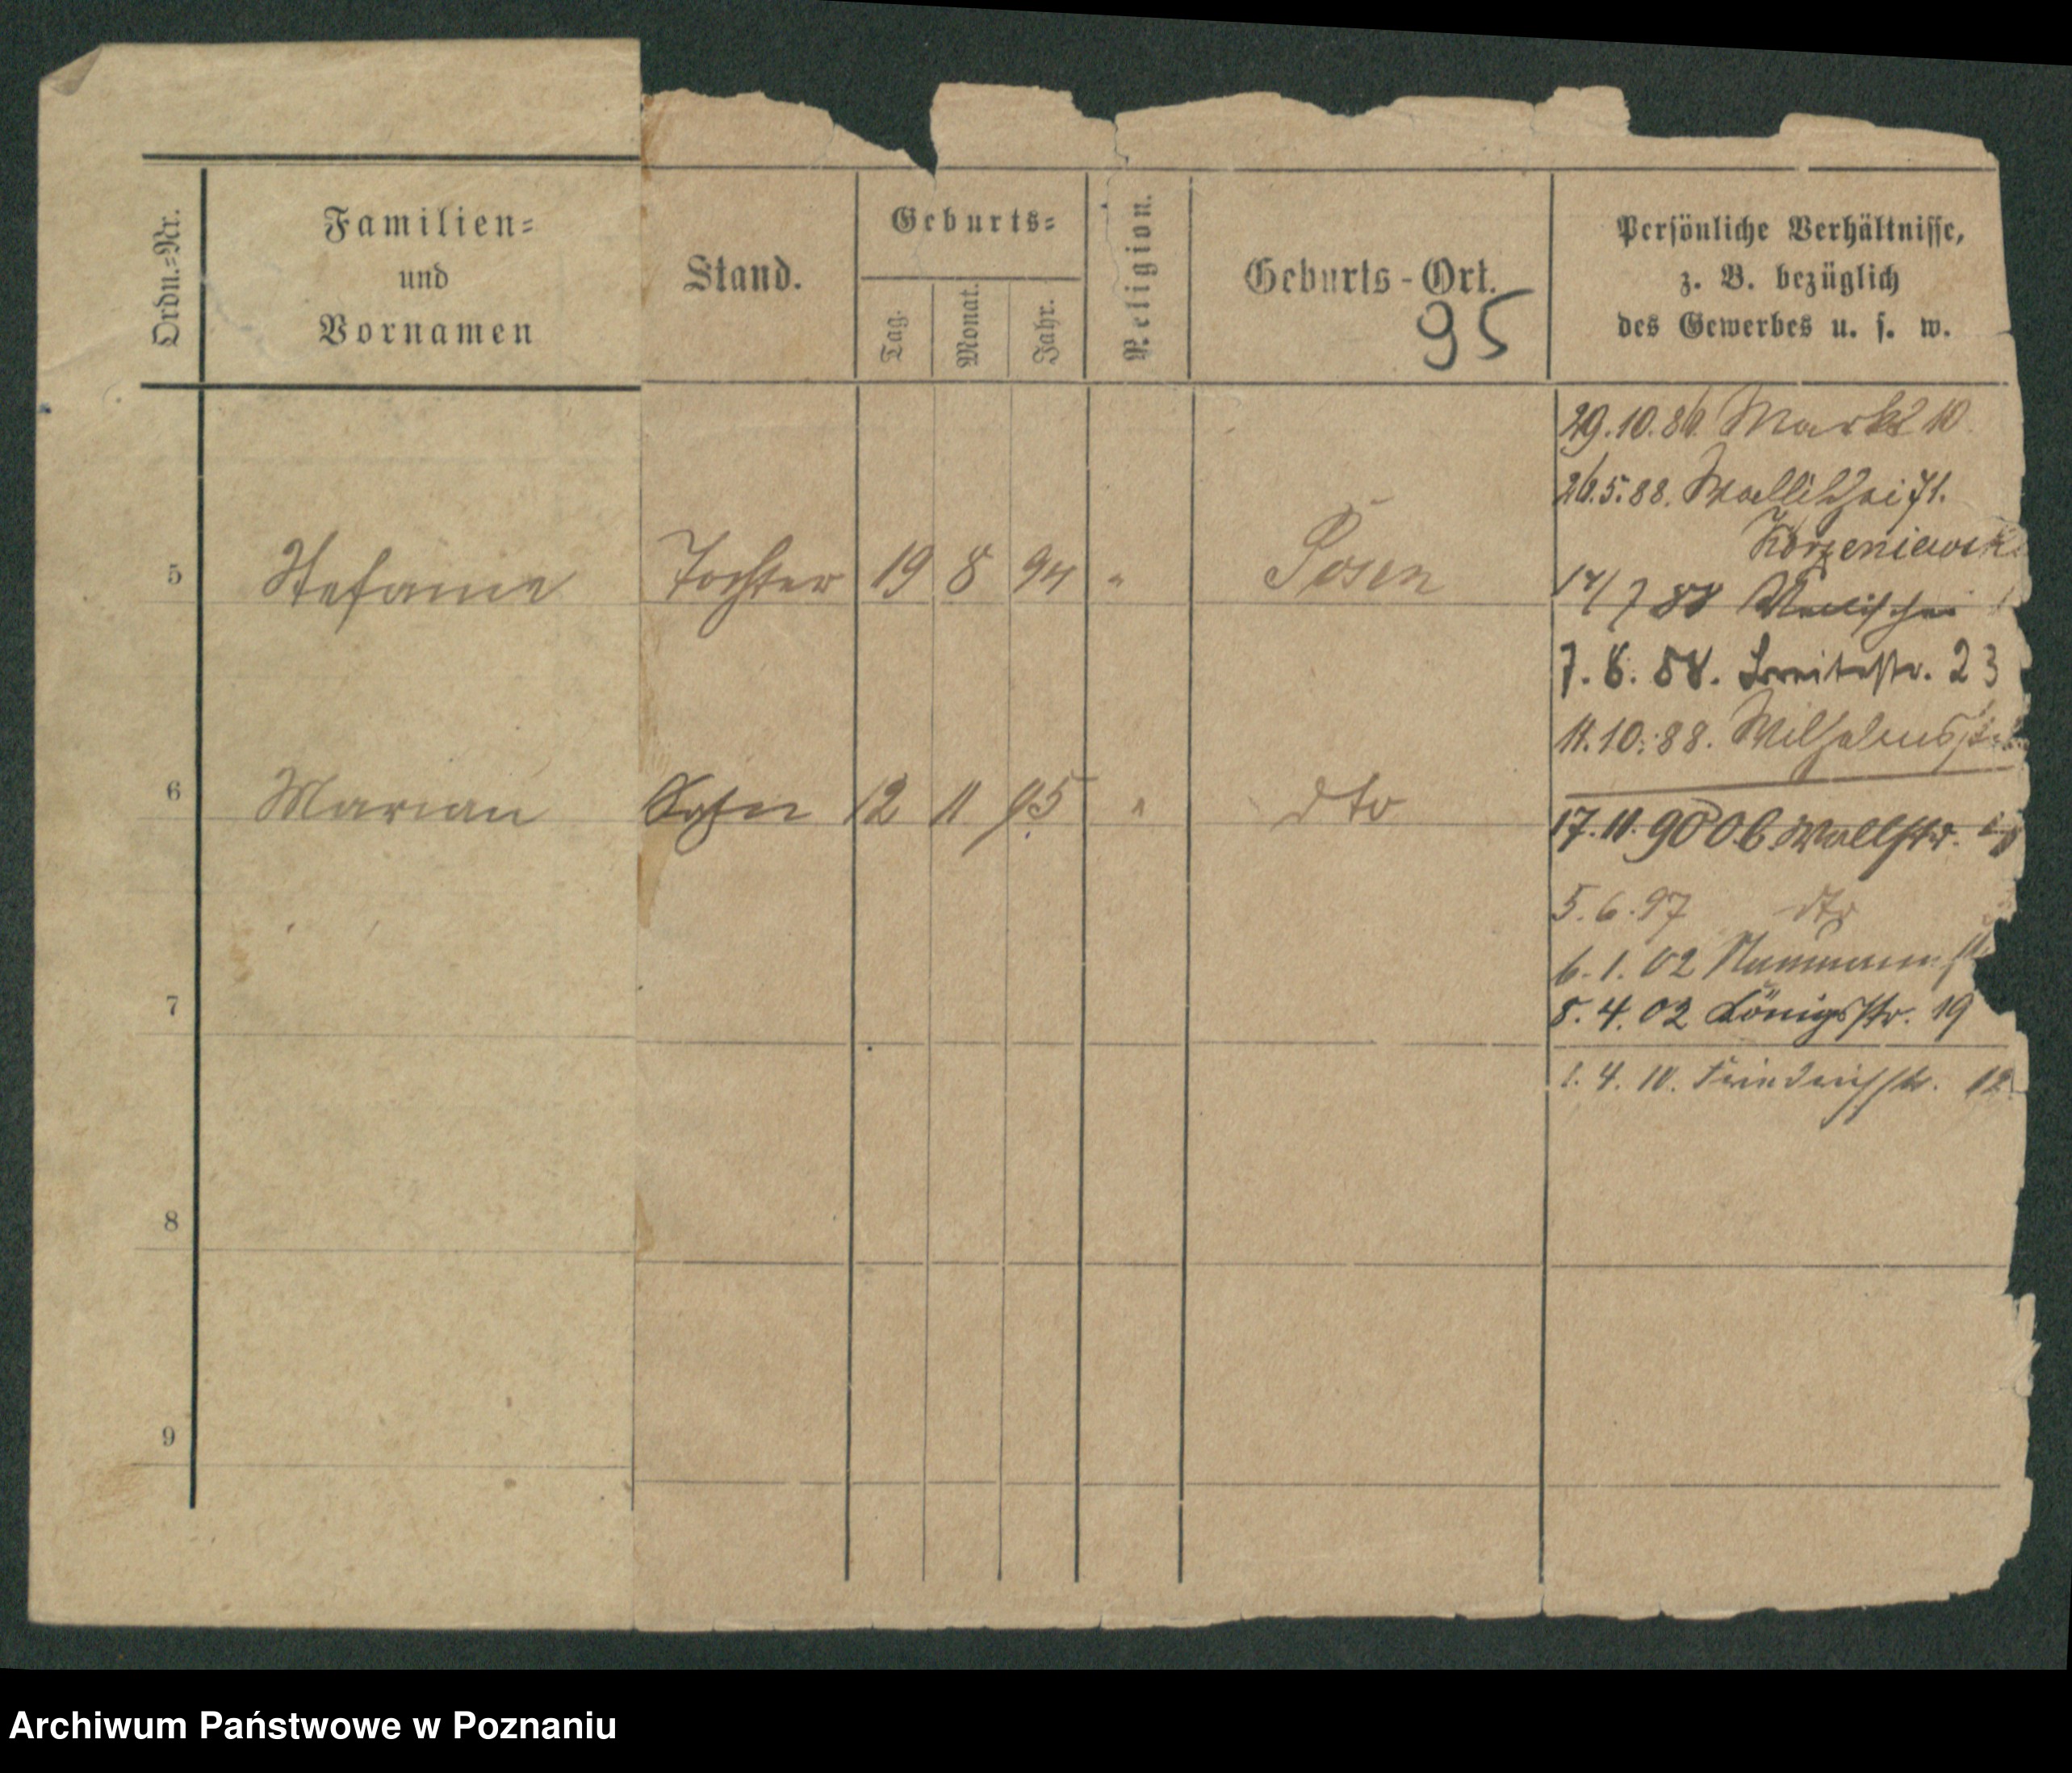 Ordn.=Nr.
Familien=
und
Vornamen
Stand.
Geburts=
Tag.
Monat.
Jahr.
Religion.
Geburts-Ort.
95
Persönliche Verhältnisse,
z. B. bezüglich
des Gewerbes u. s. w.
29.10.86. Markt 10
26.5.88. Wallischei 71.
Korzeniewski
5 Stefanie Tochter 19 8 94 " Posen
14/7 88 Wallischei
7. 8. 88. Breitestr. 23
11.10.88. Wilhelmsstr.
6 Marian Sohn 12 11 95 " dto
17.11.90 Ob. Wallstr.
5.6.97 dto
6.1.02 Naumannstr
7
8.4.02 Königsstr. 19
1.4.10. Friedrichstr. 12
8
9
Archiwum Państwowe w Poznaniu